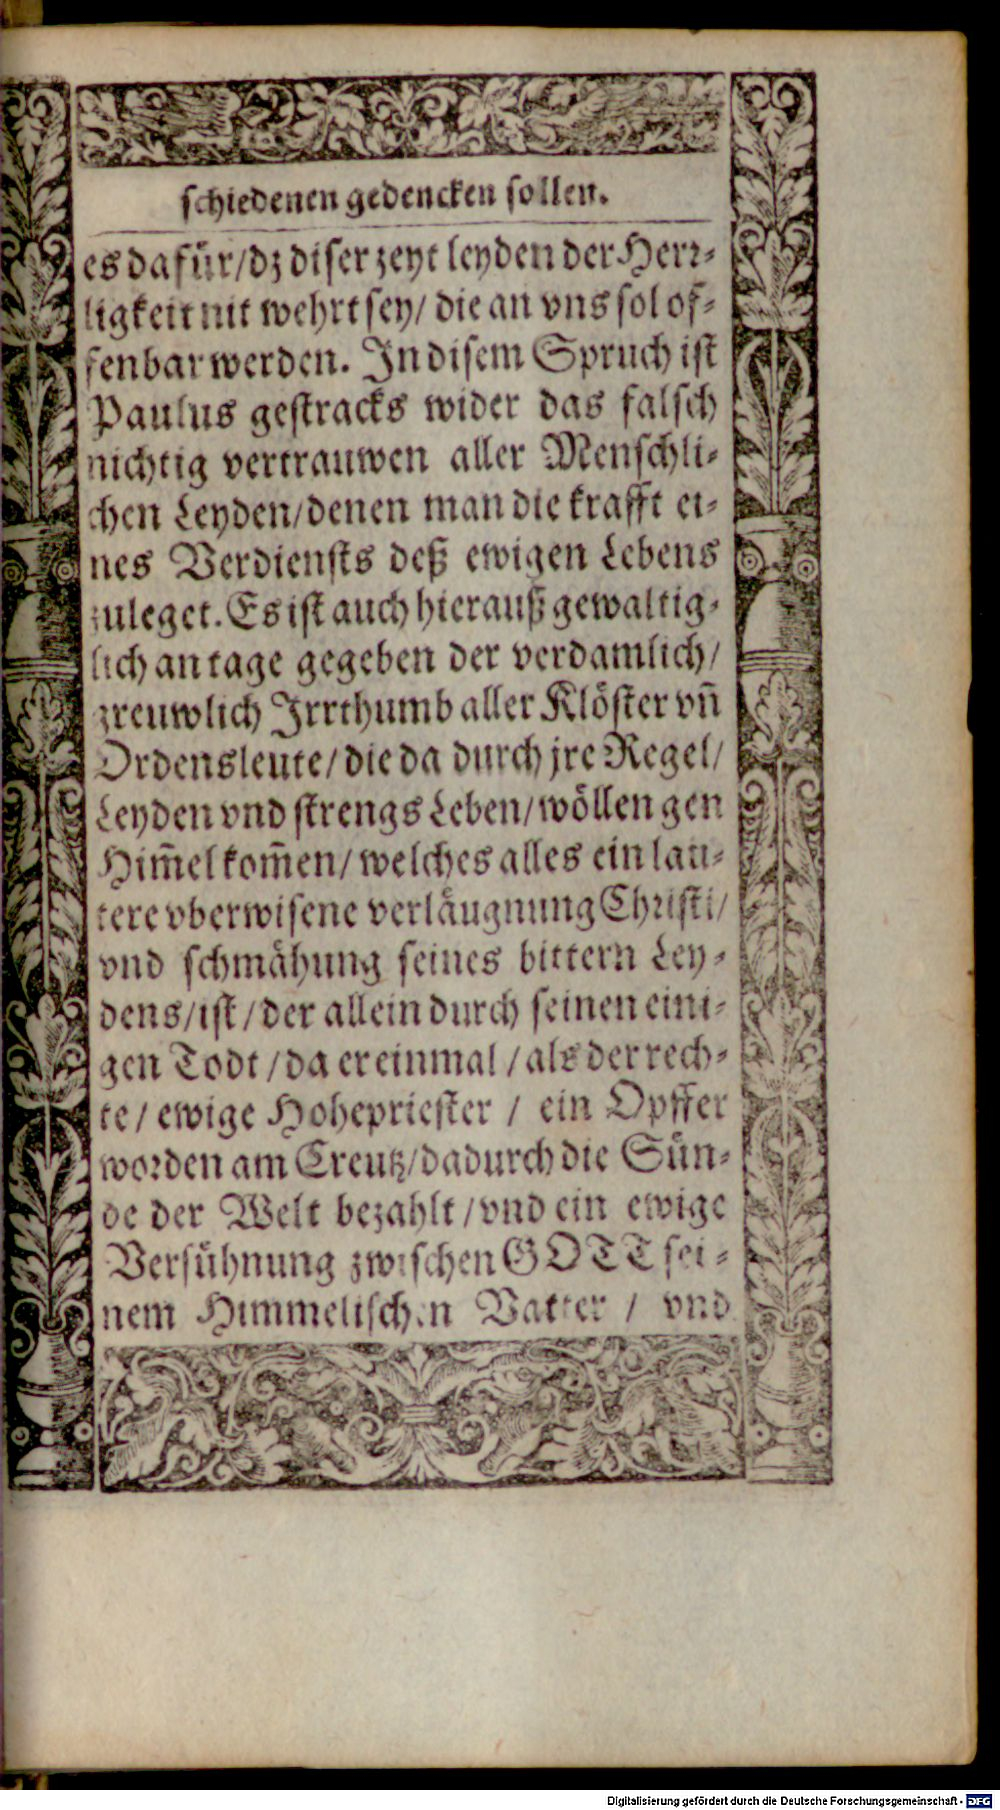 schiedenen gedencken sollen.
es dafür/dz diser zeyt leyden der Herr-
ligkeit nit wehrt sey/ die an vns sol of-
fenbar werden. In disem Spruch ist
Paulus gestracks wider das falsch
nichtig vertrauwen aller Menschli-
chen Leyden/denen man die krafft ei-
nes Verdiensts deß ewigen Lebens
zuleget. Es ist auch hierauß gewaltig-
lich an tage gegeben der verdamlich/
greuwlich Irrthumb aller Klöster vn̄
Ordensleute/ die da durch jre Regel/
Leyden vnd strengs Leben/ wöllen gen
Him̄el kom̄en/ welches alles ein lau-
tere vberwisene verläugnung Christi/
vnd schmähung seines bittern Ley-
dens/ist/ der allein durch seinen eini-
gen Todt/ da er einmal/ als der rech-
te/ ewige Hohepriester/ ein Opffer
worden am Creutz/dadurch die Sün-
de der Welt bezahlt/ vnd ein ewige
Versühnung zwischen GOTT sei-
nem Himmelischen Vatter/ vnd
Digitalisierung gefördert durch die Deutsche Forschungsgemeinschaft - DFG